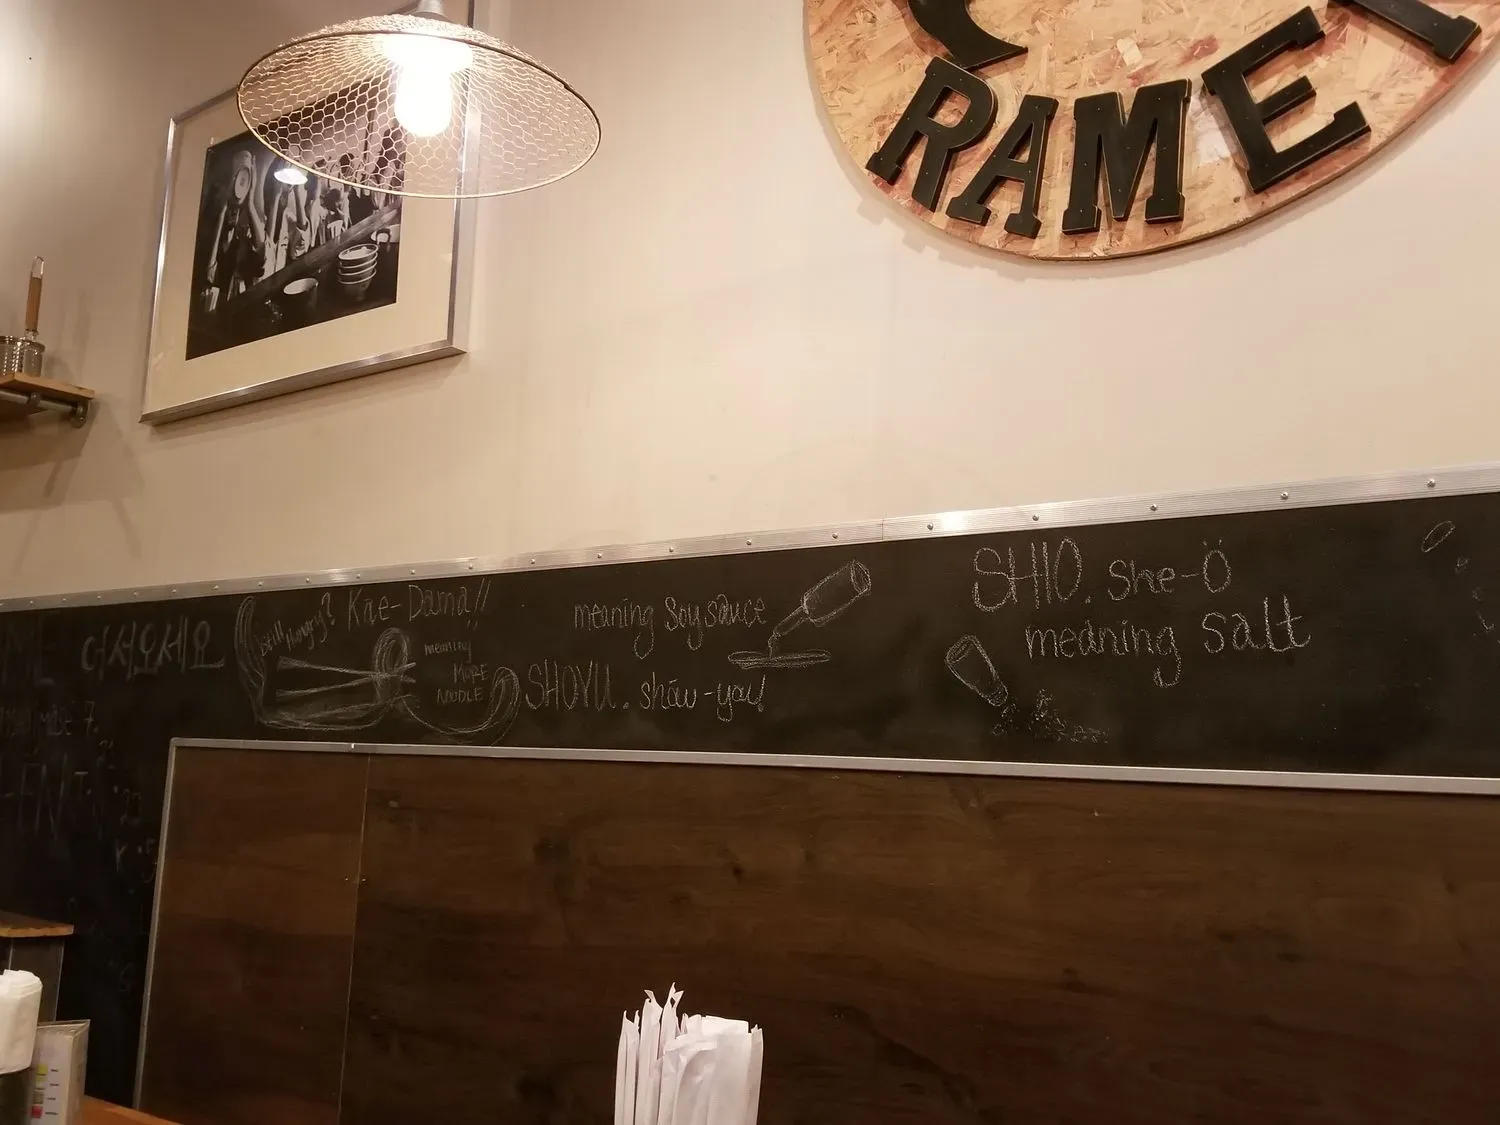 RAMEN
어서오세요
still Hungry? Kae-Dama!!
meaning
MORE
NOODLE
meaning Soy sauce
SHOYU. show-you!
SHIO. She-Ö
meaning Salt